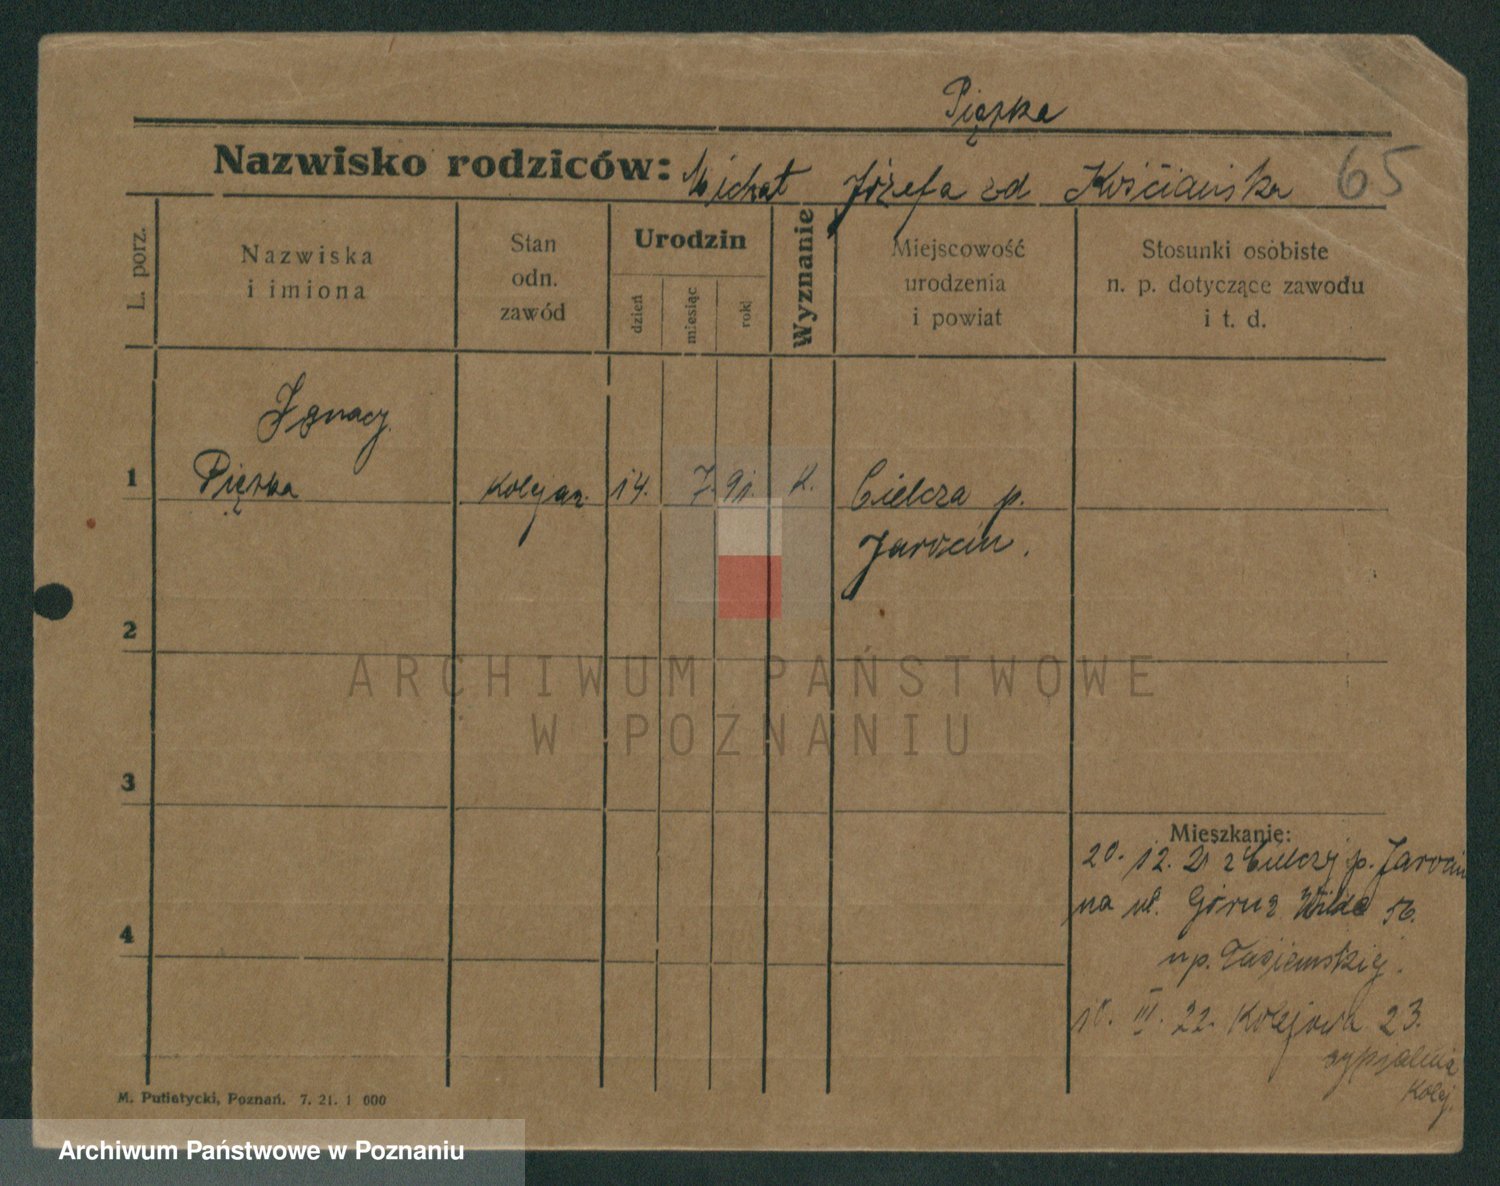 Pięzka
Nazwisko rodziców: Michał Józefa zd Kościańska 65
L. porz.
Nazwiska
i imiona
Stan
odn.
zawód
Urodzin
dzień
miesiąc
rok
Wyznanie
Miejscowość
urodzenia
i powiat
Stosunki osobiste
n. p. dotyczące zawodu
i t. d.
Ignacy
1 Pięzka kolejarz. 14. 7. 91. K. Cielcza p.
Jarocin.
2
ARCHIWUM PAŃSTWOWE
W POZNANIU
3
Mieszkanie:
20. 12. 21 z Cielczy p. Jarocin
na ul. Górna Wilda 56.
u p. Tasiemskiej.
10. III. 22. Kolejowa 23.
sypialnia
Kolej.
4
M. Putiatycki, Poznań. 7. 21. 1 000
Archiwum Państwowe w Poznaniu